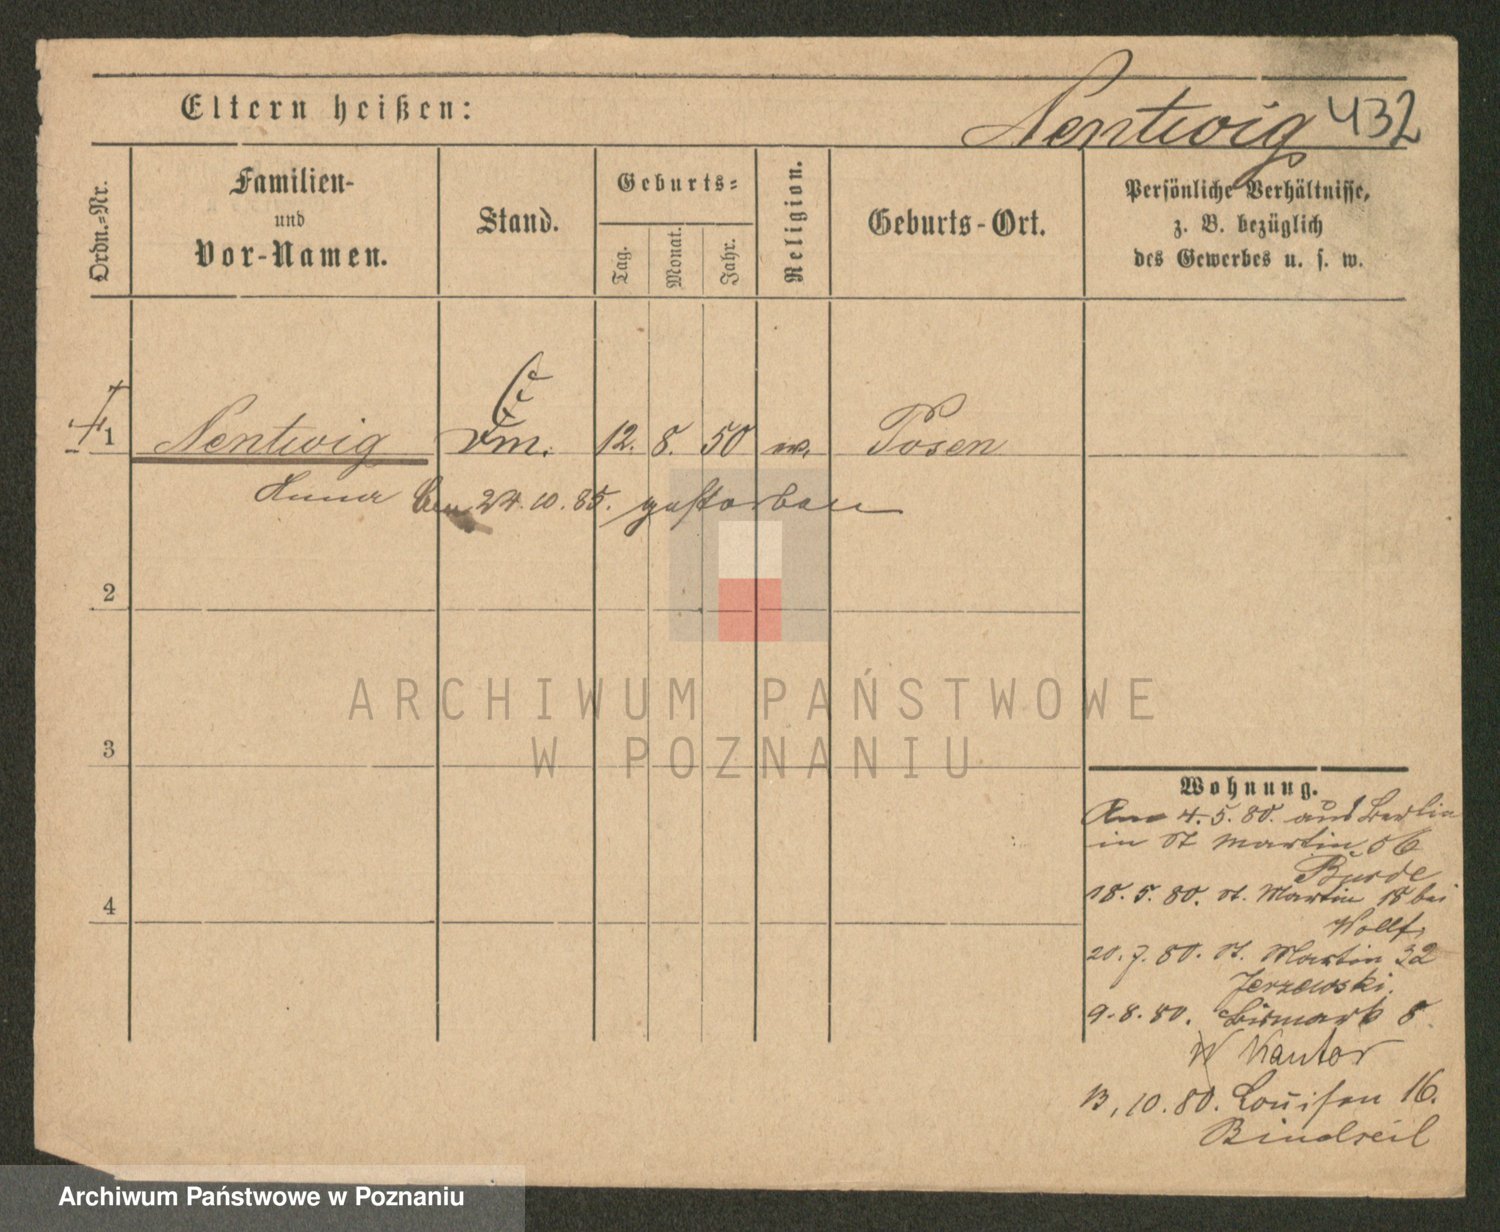 Eltern heißen:
Nentwig 432
Ordn.-Nr.
Familien-
und
Vor-Namen.
Stand.
Geburts-
Tag.
Monat.
Jahr.
Religion.
Geburts-Ort.
Persönliche Verhältnisse,
z. B. bezüglich
des Gewerbes u. s. w.
1 Nentwig 12. 8. 50 Posen
Anna den 24.10.85. gestorben
2
3
4
ARCHIWUM PAŃSTWOWE
W POZNANIU
Wohnung.
4.5.80. aus Berlin
in St Martin 56
Burde
18.5.80. St. Martin 18 bei
Wollf.
20.7.80. St. Martin 32
Jerzewski.
9.8.80. Bismark 8
W Kantor
13.10.80. Louisen 16.
Bindseil
Archiwum Państwowe w Poznaniu